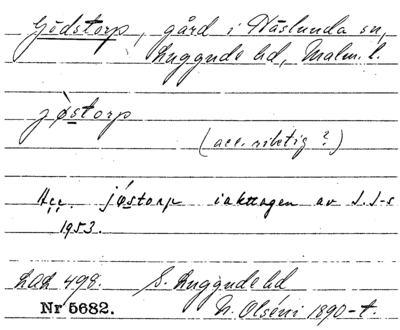 Gödstorp, gård i Näslunda sn,
Luggude hd, Malm. l.
jø̀storp
(acc. riktig?)
Acc. jǿstorp iakttagen av I.I-s
1953.
LAL 498. S. Luggude hd
Nr 5682. N. Olséni 1890-t.